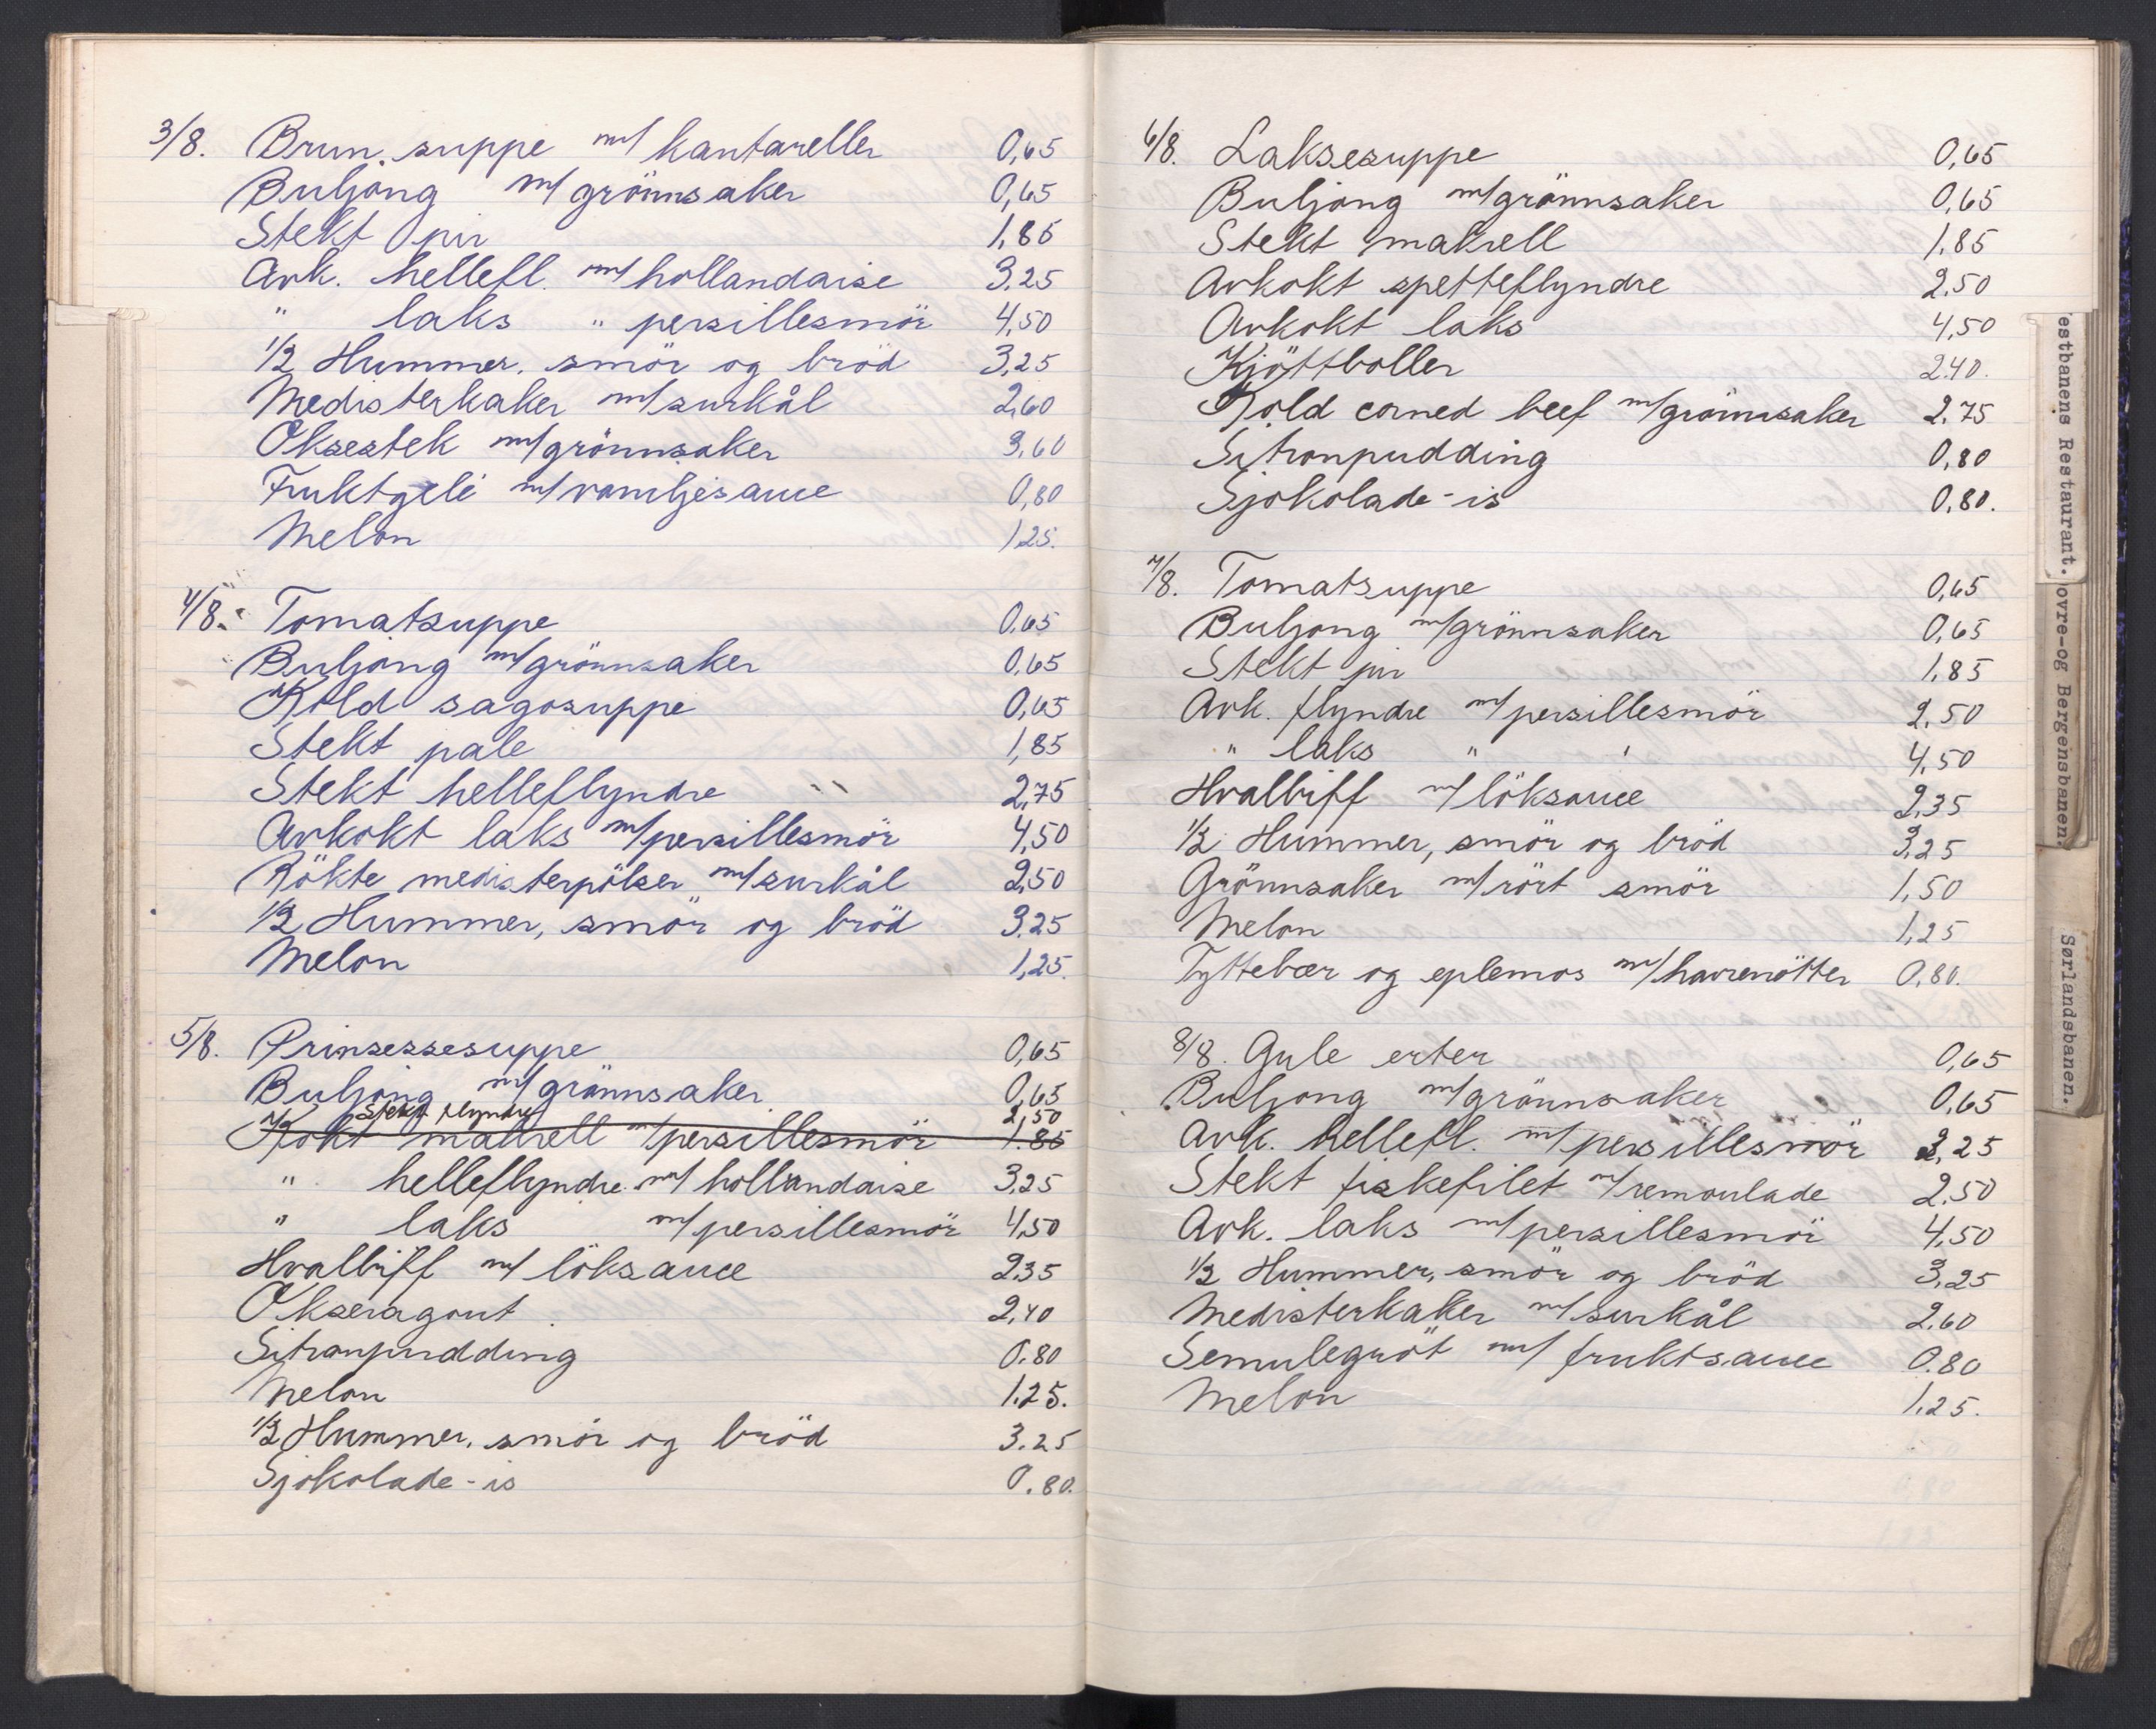 3/8. Brun. suppe m/ kantareller 0,65
Buljong m/ grönnsaker 0,65
Stekt pir 1,85
Avk. hellefl. m/ hollandaise 3.25
" laks " persillesmör 4,50
1/2 Hummer, smör og bröd 3,25
Medisterkaker m/ surkål 2,60
Oksestek m/ grönnsaker 3,60
Fruktgelé m/ vaniljesauce 0,80
Melon 1,25.
4/8. Tomatsuppe 0.65
Buljong m/ grönnsaker 0.65
Kold sagosuppe 0,65
Stekt pale 1,85
Stekt helleflyndre 2,75
Avkokt laks m/ persillesmör 4,50
Rökte medisterpölser m/ surkål 2,50
1/2 Hummer, smör og bröd 3.25
Melon 1,25.
5/8. Prinsessesuppe 0,65
Buljong m/ grönnsaker 0,65
Stekt flyndre 2,50
Kokt makrell m/ persillesmör 1.85
" helleflyndre m/ hollandaise 3,25
" laks m/ persillesmör 4,50
Hvalbiff m/ löksauce 2,35
Okseragout 2,40
Sitronpudding 0.80
Melon 1.25.
1/2 Hummer, smör og bröd 3.25
Sjokolade-is 0.80.
6/8. Laksesuppe 0,65
Buljong m/ grönnsaker 0,65
Stekt makrell 1.85
Avkokt spetteflyndre 2,50
Avkokt laks 4,50
Kjöttboller 2.40.
Kold corned beef m/ grönnsaker 2.75
Sitronpudding 0,80
Sjokolade-is 0,80.
7/8. Tomatsuppe 0,65
Buljong m/ grönnsaker 0,65
Stekt pir 1,85
Avk. flyndre m/ persillesmör 2,50
" laks " " 4,50
Hvalbiff m/ löksauce 2,35
1/2 Hummer, smör og bröd 3,25
Grönnsaker m/ rört smör 1,50
Melon 1,25
Tyttebær og eplemos m/ havrenötter 0,80.
8/8. Gule erter 0,65
Buljong m/ grönnsaker 0,65
Avk. hellefl. m/ persillesmör 3,25
Stekt fiskefilet m/ remoulade 2.50
Avk. laks m/ persillesmör 4,50
1/2 Hummer, smör og bröd 3,25
Medisterkaker m/ surkål 2.60
Semulegröt m/ fruktsauce 0.80
Melon 1,25.
estbanens Restaurant.
ovre-og Bergensbanen.
Sørlandsbanen.